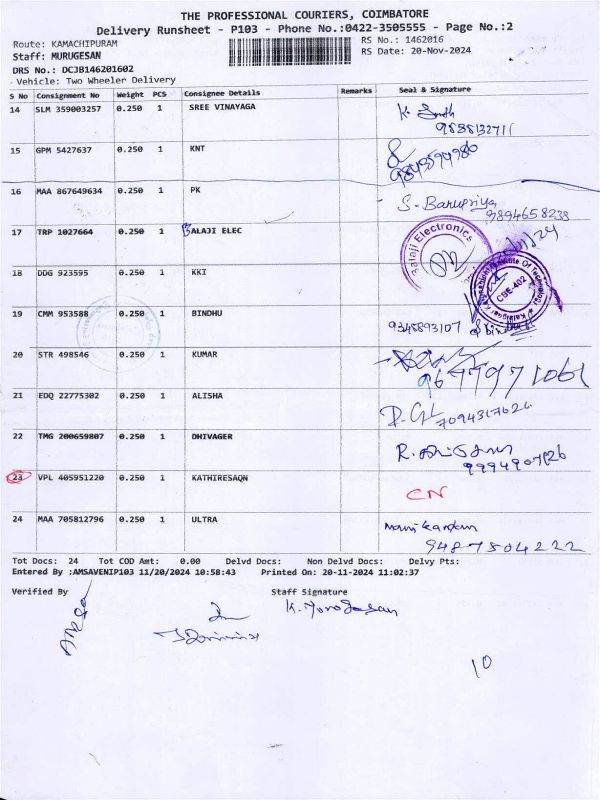 THE PROFESSIONAL COURIERS, COIMBATORE
Delivery Runsheet - P103 - Phone No.:0422-3505555 - Page No.:2
Route: KAMACHIPURAM
RS No.: 1462016
Staff: MURUGESAN
RS Date: 20-Nov-2024
DRS No.: DCJB146201602
Vehicle: Two Wheeler Delivery
S No Consignment No Weight PCS Consignee Details Remarks Seal & Signature
14 SLM 359003257 0.250 1 SREE VINAYAGA
15 GPM 5427637 0.250 1 KNT
16 MAA 867649634 0.250 1 PK
S. Banupriya
9894658238
17 TRP 1027664 0.250 1 BALAJI ELEC
Balaji Electronics
18 DDG 923595 0.250 1 KKI
CBE-402
19 CMM 953588 0.250 1 BINDHU
9345893107
20 STR 498546 0.250 1 KUMAR
21 EDQ 22775302 0.250 1 ALISHA
7094317626
22 TMG 200659807 0.250 1 DHIVAGER
23 VPL 405951220 0.250 1 KATHIRESAQN
CN
24 MAA 705812796 0.250 1 ULTRA
Manikandan
9487504222
Tot Docs: 24 Tot COD Amt: 0.00 Delvd Docs: Non Delvd Docs: Delvy Pts:
Entered By :AMSAVENIP103 11/20/2024 10:58:43 Printed On: 20-11-2024 11:02:37
Verified By Staff Signature
10